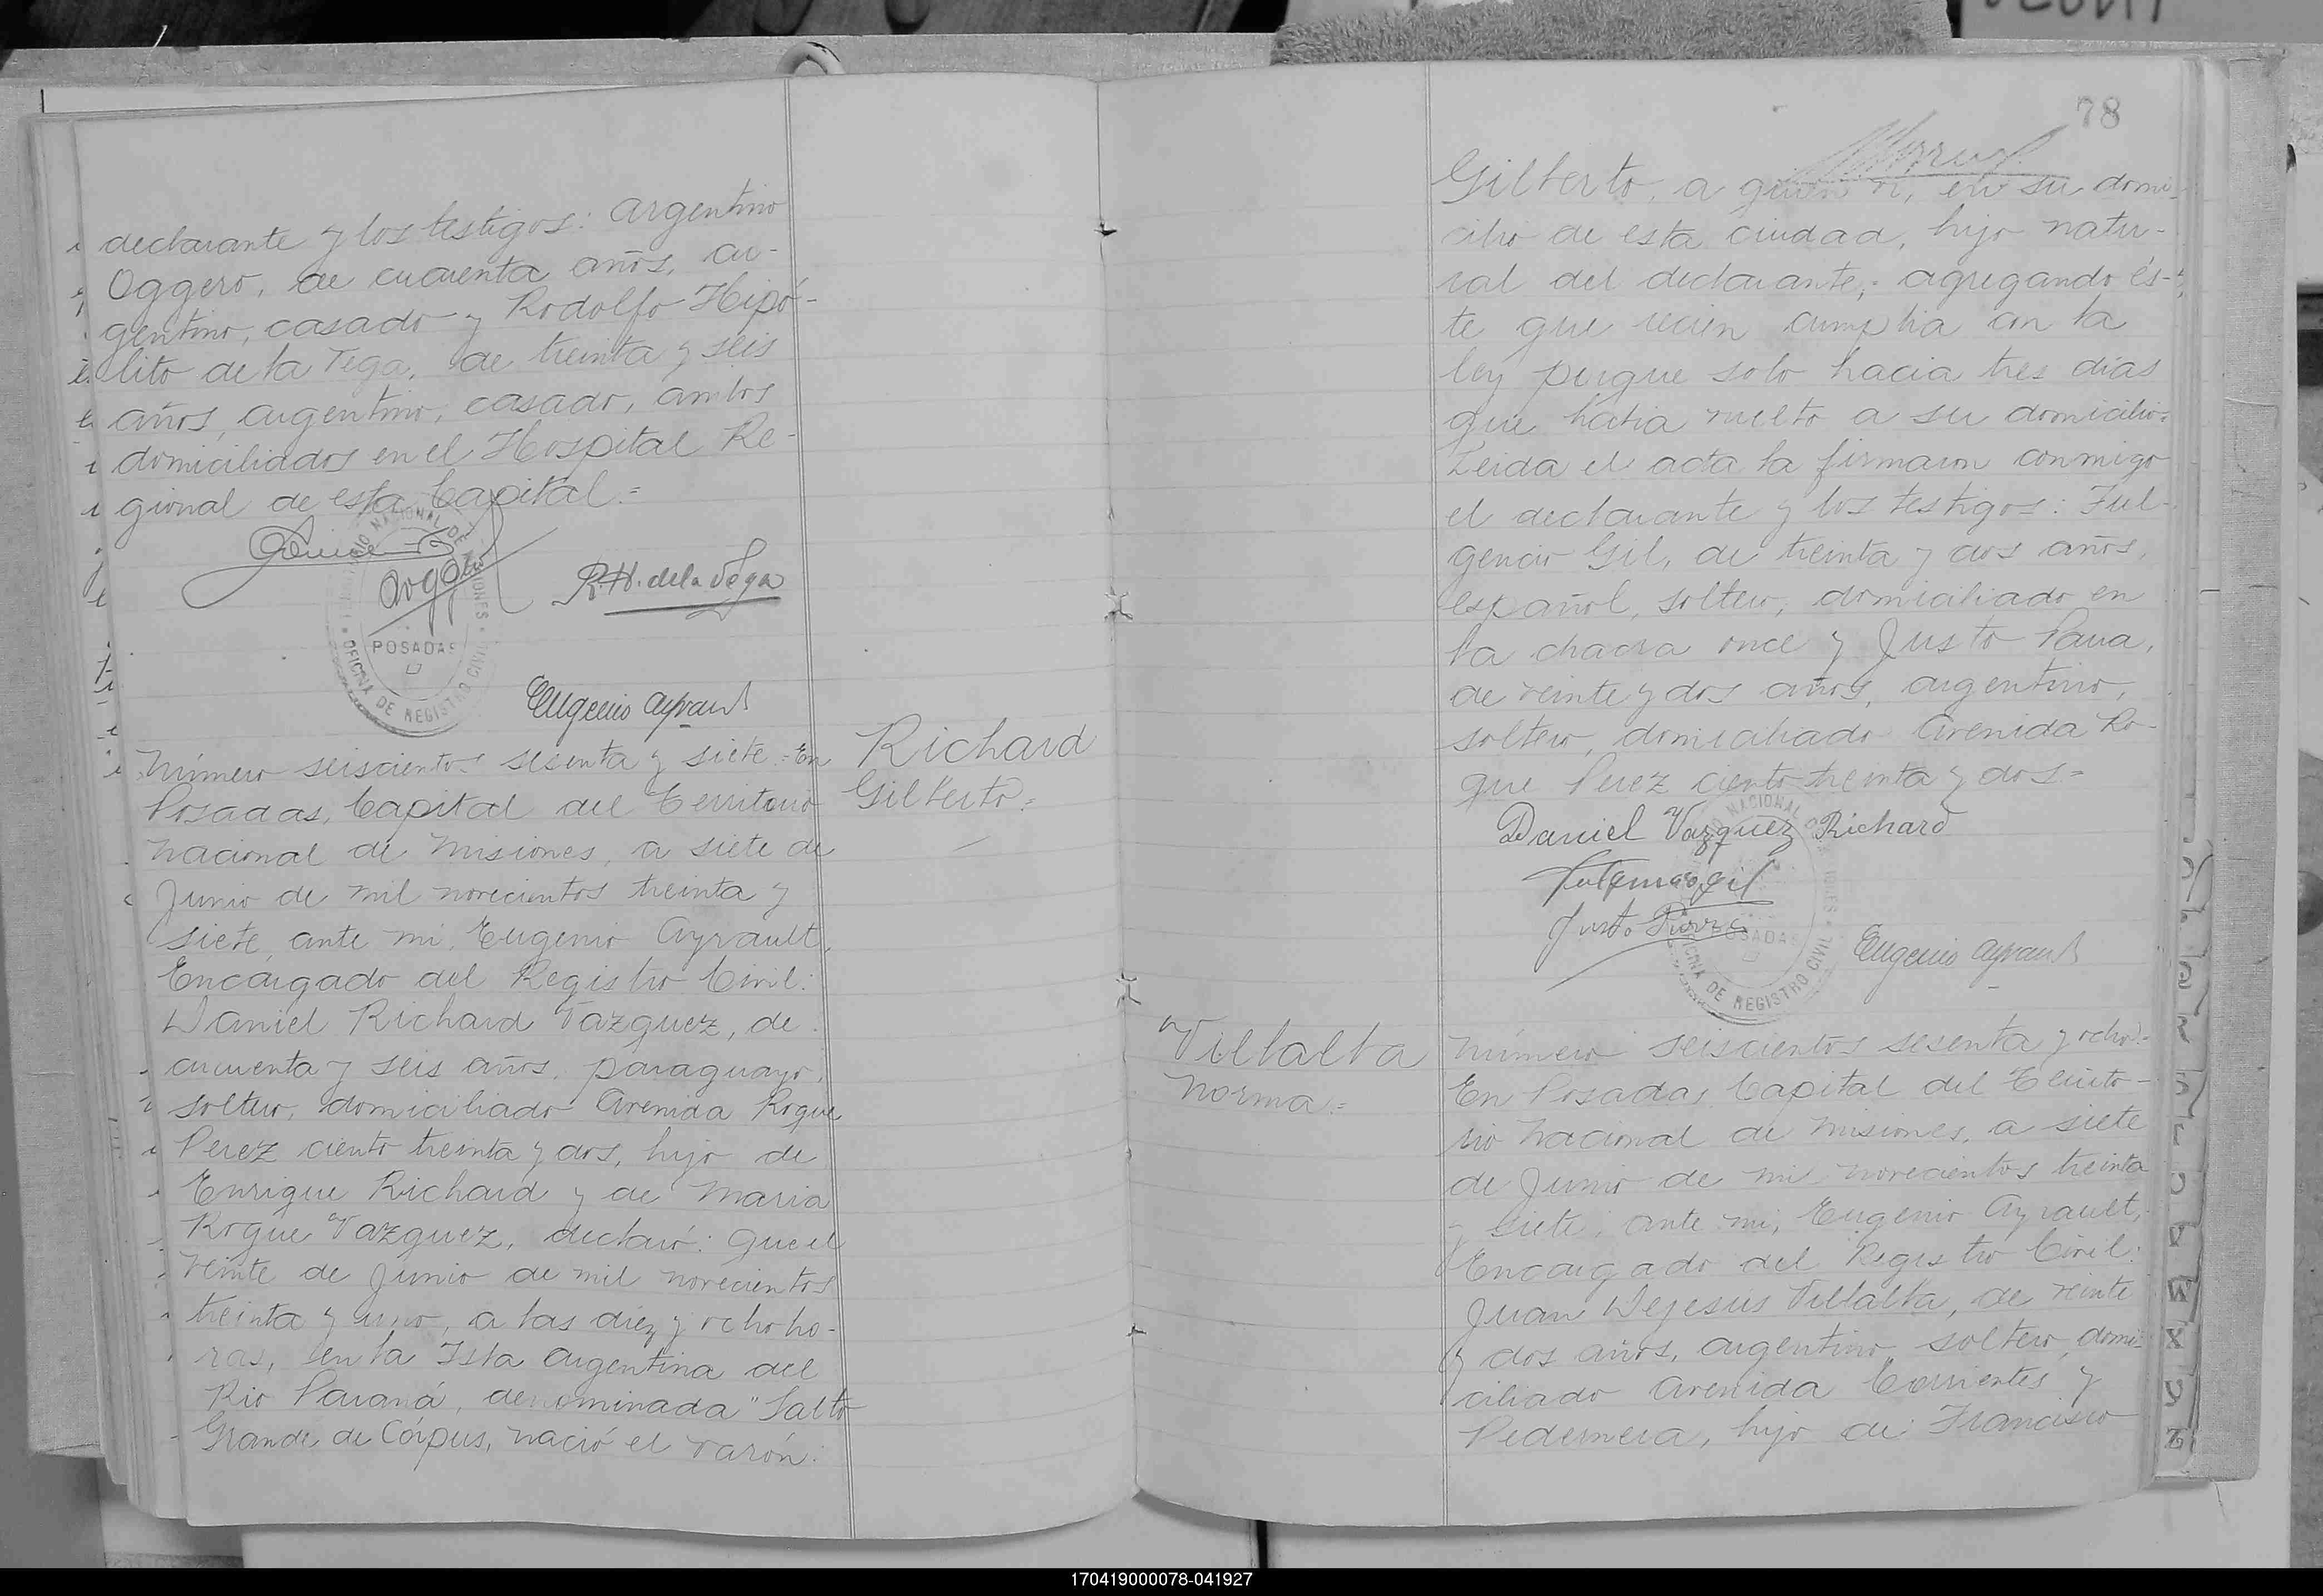 declarante y los testigos: Argentino
Oggero, de cuarenta años, ar-
gentino, casado y Rodolfo Hipó-
lito de la Vega, de treinta y seis
años, argentino, casado, ambos
domiciliados en el Hospital Re-
gional de esta Capital.=
R.H. de la Vega
POSADAS
OFICINA DE REGISTRO CIVIL
Eugenio Ayrault
Richard
Gilberto.=
Número seiscientos sesenta y siete.=En
Posadas, Capital del Territorio
Nacional de Misiones, a siete de
Junio de mil novecientos treinta y
siete, ante mi, Eugenio Ayrault,
Encargado del Registro Civil:
Daniel Richard Vazquez, de
cuarenta y seis años, paraguayo,
soltero, domiciliado Avenida Roque
Perez ciento treinta y dos, hijo de
Enrique Richard y de Maria
Roque Vazquez, declaró: Que el
veinte de Junio de mil novecientos
treinta y uno, a las diez y ocho ho-
ras, en la Isla Argentina del
Rio Paraná, denominada "Salto
Grande de Córpus, nació el varón:
78
Gilberto, a quien vi, en su domi-
cilio de esta ciudad, hijo natu-
ral del declarante; agregando és-
te que recien cumplia con la
ley porque solo hacia tres dias
que habia vuelto a su domicilio.=
Leida el acta la firmaron conmigo
el declarante y los testigos: Ful-
gencio Gil, de treinta y dos años,
español, soltero, domiciliado en
la chacra once y Justo Parra,
de veinte y dos años, argentino,
soltero, domiciliado Avenida Ro-
que Perez ciento treinta y dos=
Daniel Vazquez Richard
Fulgencio Gil
Justo Parra
POSADAS
OFICINA DE REGISTRO CIVIL
Eugenio Ayrault
Villalba
Norma.=
Número seiscientos sesenta y ocho.=
En Posadas, Capital del Territo-
rio Nacional de Misiones, a siete
de Junio de mil novecientos treinta
y siete, ante mi, Eugenio Ayrault,
Encargado del Registro Civil:
Juan Dejesús Villalba, de veinte
y dos años, argentino, soltero, domi-
ciliado Avenida Corrientes y
Pedernera, hijo de Francisco
170419000078-041927